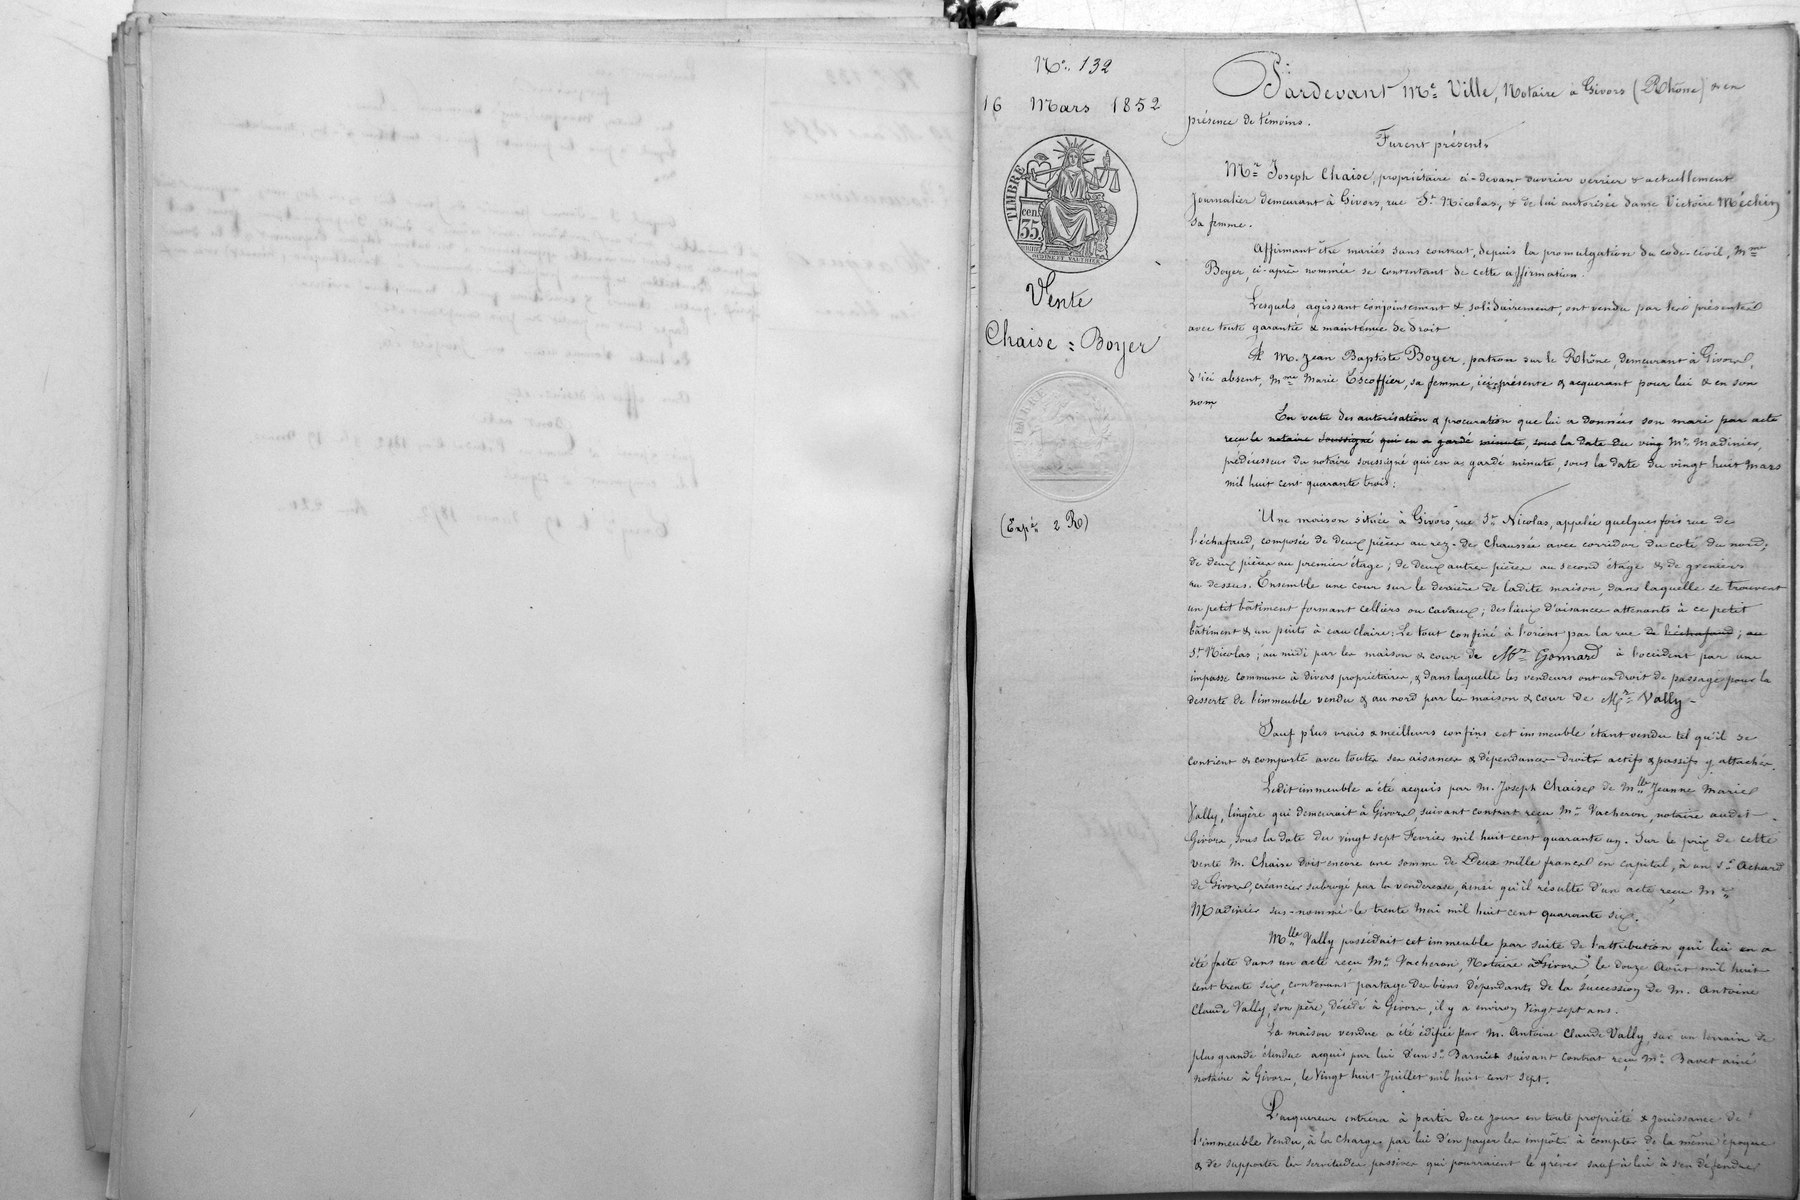 N°. 132
16 Mars 1852
TIMBRE
35 cen.
OUDINÉ ET VAUTHIER
Vente
Chaise = Boyer
(Expé. 2 R)
Pardevant Me. Ville, Notaire à Givors (Rhône) & en
présence de témoins.
Furent présents
Mr. Joseph Chaise, propriétaire ci-devant ouvrier verrier & actuellement
Journalier demeurant à Givors, rue St. Nicolas, & de lui autorisée dame Victoire Méchin
sa femme.
Affirmant être mariés sans contrat, depuis la promulgation du code-civil, Mme
Boyer, ci-après nommée se contentant de cette affirmation.
Lesquels, agissant conjointement & solidairement, ont vendu par les présentes
avec toute garantie & maintenue de droit
A M. Jean Baptiste Boyer, patron sur le Rhône, demeurant à Givors,
d'ici absent, Mme. Marie Escoffier, sa femme, ici présente & acquerant pour lui & en son
nom
En vertu des autorisation & procuration que lui a données son mari par acte
reçu le notaire soussigné qui en a gardé minute, sous la date du ving Me. Madinier,
prédécesseur du notaire soussigné qui en a gardé minute, sous la date du vingt huit mars
mil huit cent quarante trois:
Une maison située à Givors, rue St. Nicolas, appelée quelques fois rue de
l'échafaud, composée de deux pièces au rez-de chaussée avec corridor du coté du nord;
de deux pièces au premier étage; de deux autres pièces au second étage & de greniers
au dessus. Ensemble une cour sur le derrière de ladite maison, dans laquelle se trouvent
un petit bâtiment formant celliers ou caveaux; des lieux d'aisances attenants à ce petit
bâtiment & un puits à eau claire: Le tout confiné à l'orient par la rue de l'échafaud; au
St. Nicolas; au midi par les maison & cour de Mr. Gonnard à l'occident par une
impasse commune à divers propriétaires, & dans laquelle les vendeurs ont un droit de passage pour la
desserte de l'immeuble vendu & au nord par les maison & cour de Mr. Vally -
Sauf plus vrais & meilleurs confins cet immeuble étant vendu tel qu'il se
contient & comporte avec toutes ses aisances & dépendances droits actifs & passifs y attachés.
Ledit immeuble a été acquis par M. Joseph Chaise de Mlle Jeanne Marie
Vally, lingère qui demeurait à Givors, suivant contrat reçu Me. Vacheron, notaire audit
Givors, sous la date du vingt sept Fevrier mil huit cent quarante un. Sur le prix de cette
vente M. Chaise doit encore une somme de Deux mille francs en capital, à un Sr. Achard
de Givors, créancier subrogé par la venderesse, ainsi qu'il résulte d'un acte reçu Me.
Madinier sus-nommé le trente Mai mil huit cent quarante six.
Mlle Vally possédait cet immeuble par suite de l'attribution qui lui en a
été faite dans un acte reçu Me. Vacheron, Notaire à Givors le douze Août mil huit
cent trente six, contenant partage des biens dépendants de la succession de M. Antoine
Claude Vally, son père, décédé à Givors, il y a environ vingt sept ans.
La maison vendue a été édifiée par M. Antoine Claude Vally, sur un terrain de
plus grande étendue acquis par lui d'un Sr. Barnier suivant contrat reçu Me. Bavet ainé
notaire à Givors, le Vingt huit Juillet mil huit cent sept.
L'acquereur entrera à partir de ce jour en toute propriété & jouissance de
l'immeuble vendu, à la charge par lui d'en payer les impôts à compter de la même époque
& de supporter les servitudes passives qui pourraient le gréver sauf à lui à s'en défendre